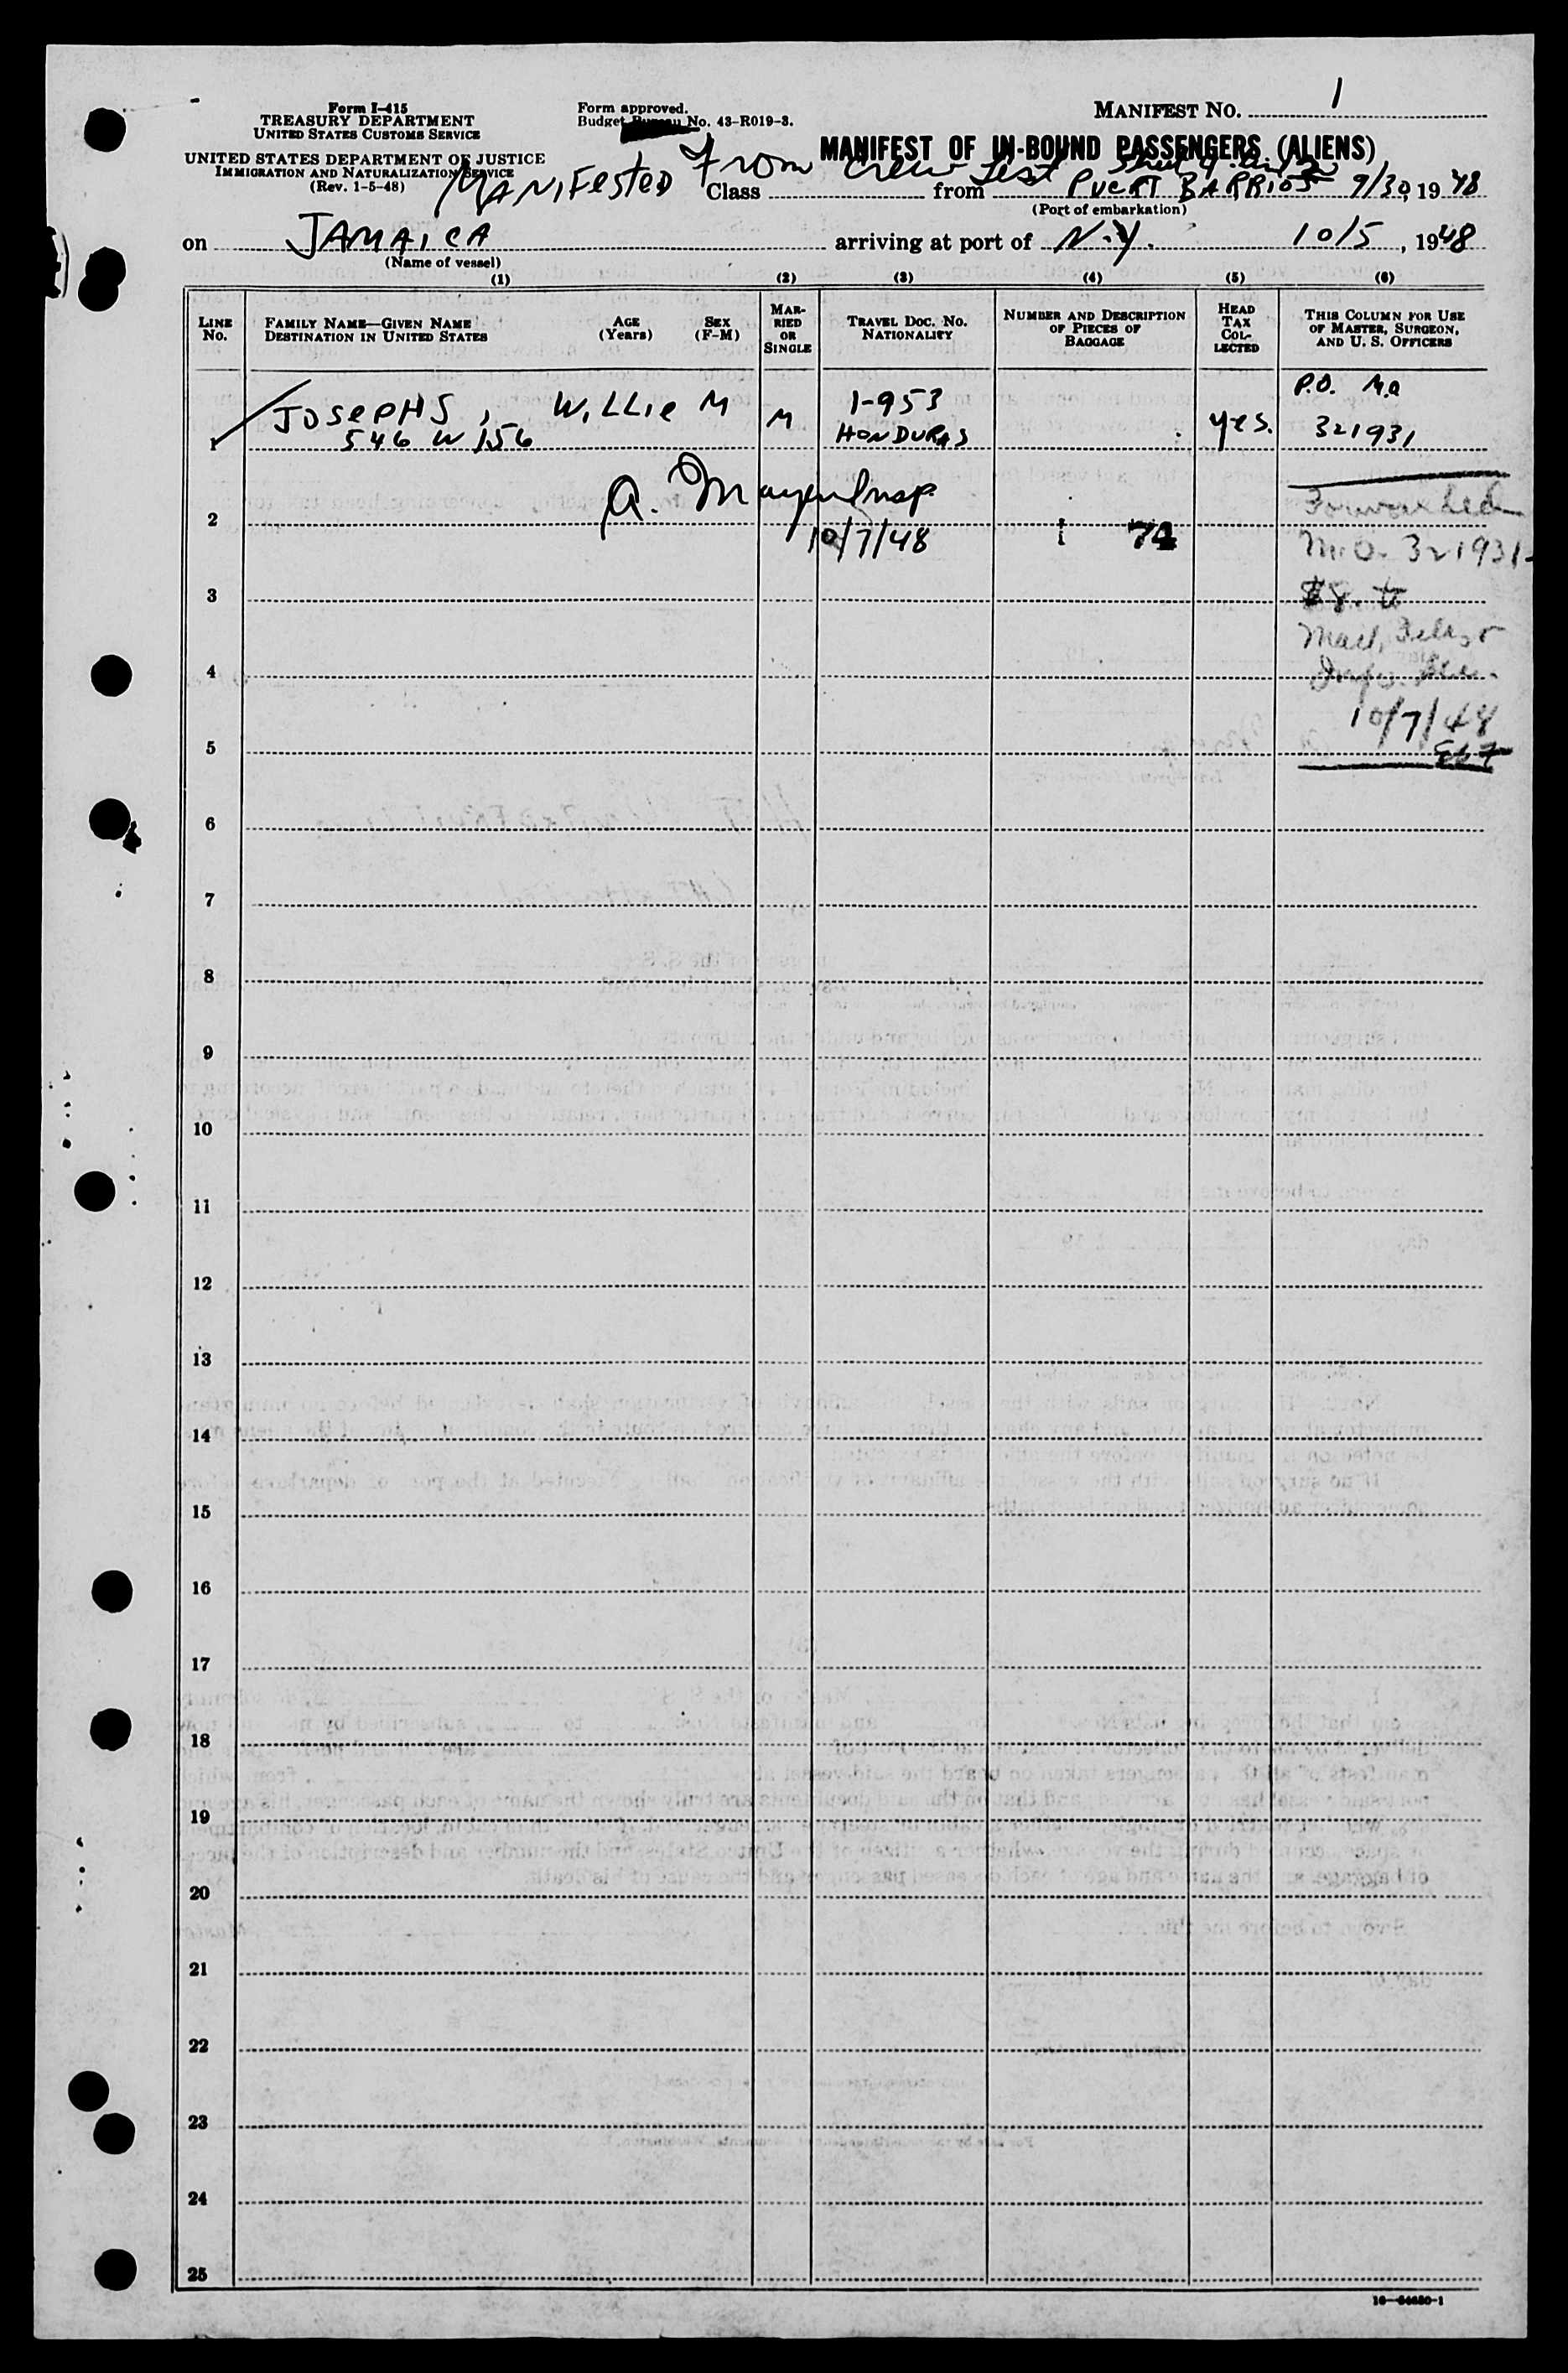 Form I-415
TREASURY DEPARTMENT
UNITED STATES CUSTOMS SERVICE
UNITED STATES DEPARTMENT OF JUSTICE
IMMIGRATION AND NATURALIZATION SERVICE
(Rev. 1-5-48)
Form approved.
Budget Bureau No. 43-R019-3.
MANIFEST NO. 1
MANIFEST OF IN-BOUND PASSENGERS (ALIENS)
MANIFESTED From Crew List
Class from PUERT BARRIOS 9/30, 1948
(Port of embarkation)
on JAMAICA arriving at port of N.Y. 10/5, 1948
(Name of vessel)
(1) (2) (3) (4) (5) (6)
LINE No.
FAMILY NAME—GIVEN NAME
DESTINATION IN UNITED STATES
AGE (Years)
SEX (F-M)
MARRIED OR SINGLE
TRAVEL DOC. NO.
NATIONALITY
NUMBER AND DESCRIPTION OF PIECES OF BAGGAGE
HEAD TAX COLLECTED
THIS COLUMN FOR USE OF MASTER, SURGEON, AND U. S. OFFICERS
1 JOSEPHS, WILLIE M M 1-953 yes. P.O. M.O
546 W 156 HONDURAS 321931
A. Mayer Insp.
10/7/48 74
Forwarded
M.O. 321931-
$8. to
Mail, Files &
Info. Sec.
10/7/48
2
3
4
5
6
7
8
9
10
11
12
13
14
15
16
17
18
19
20
21
22
23
24
25